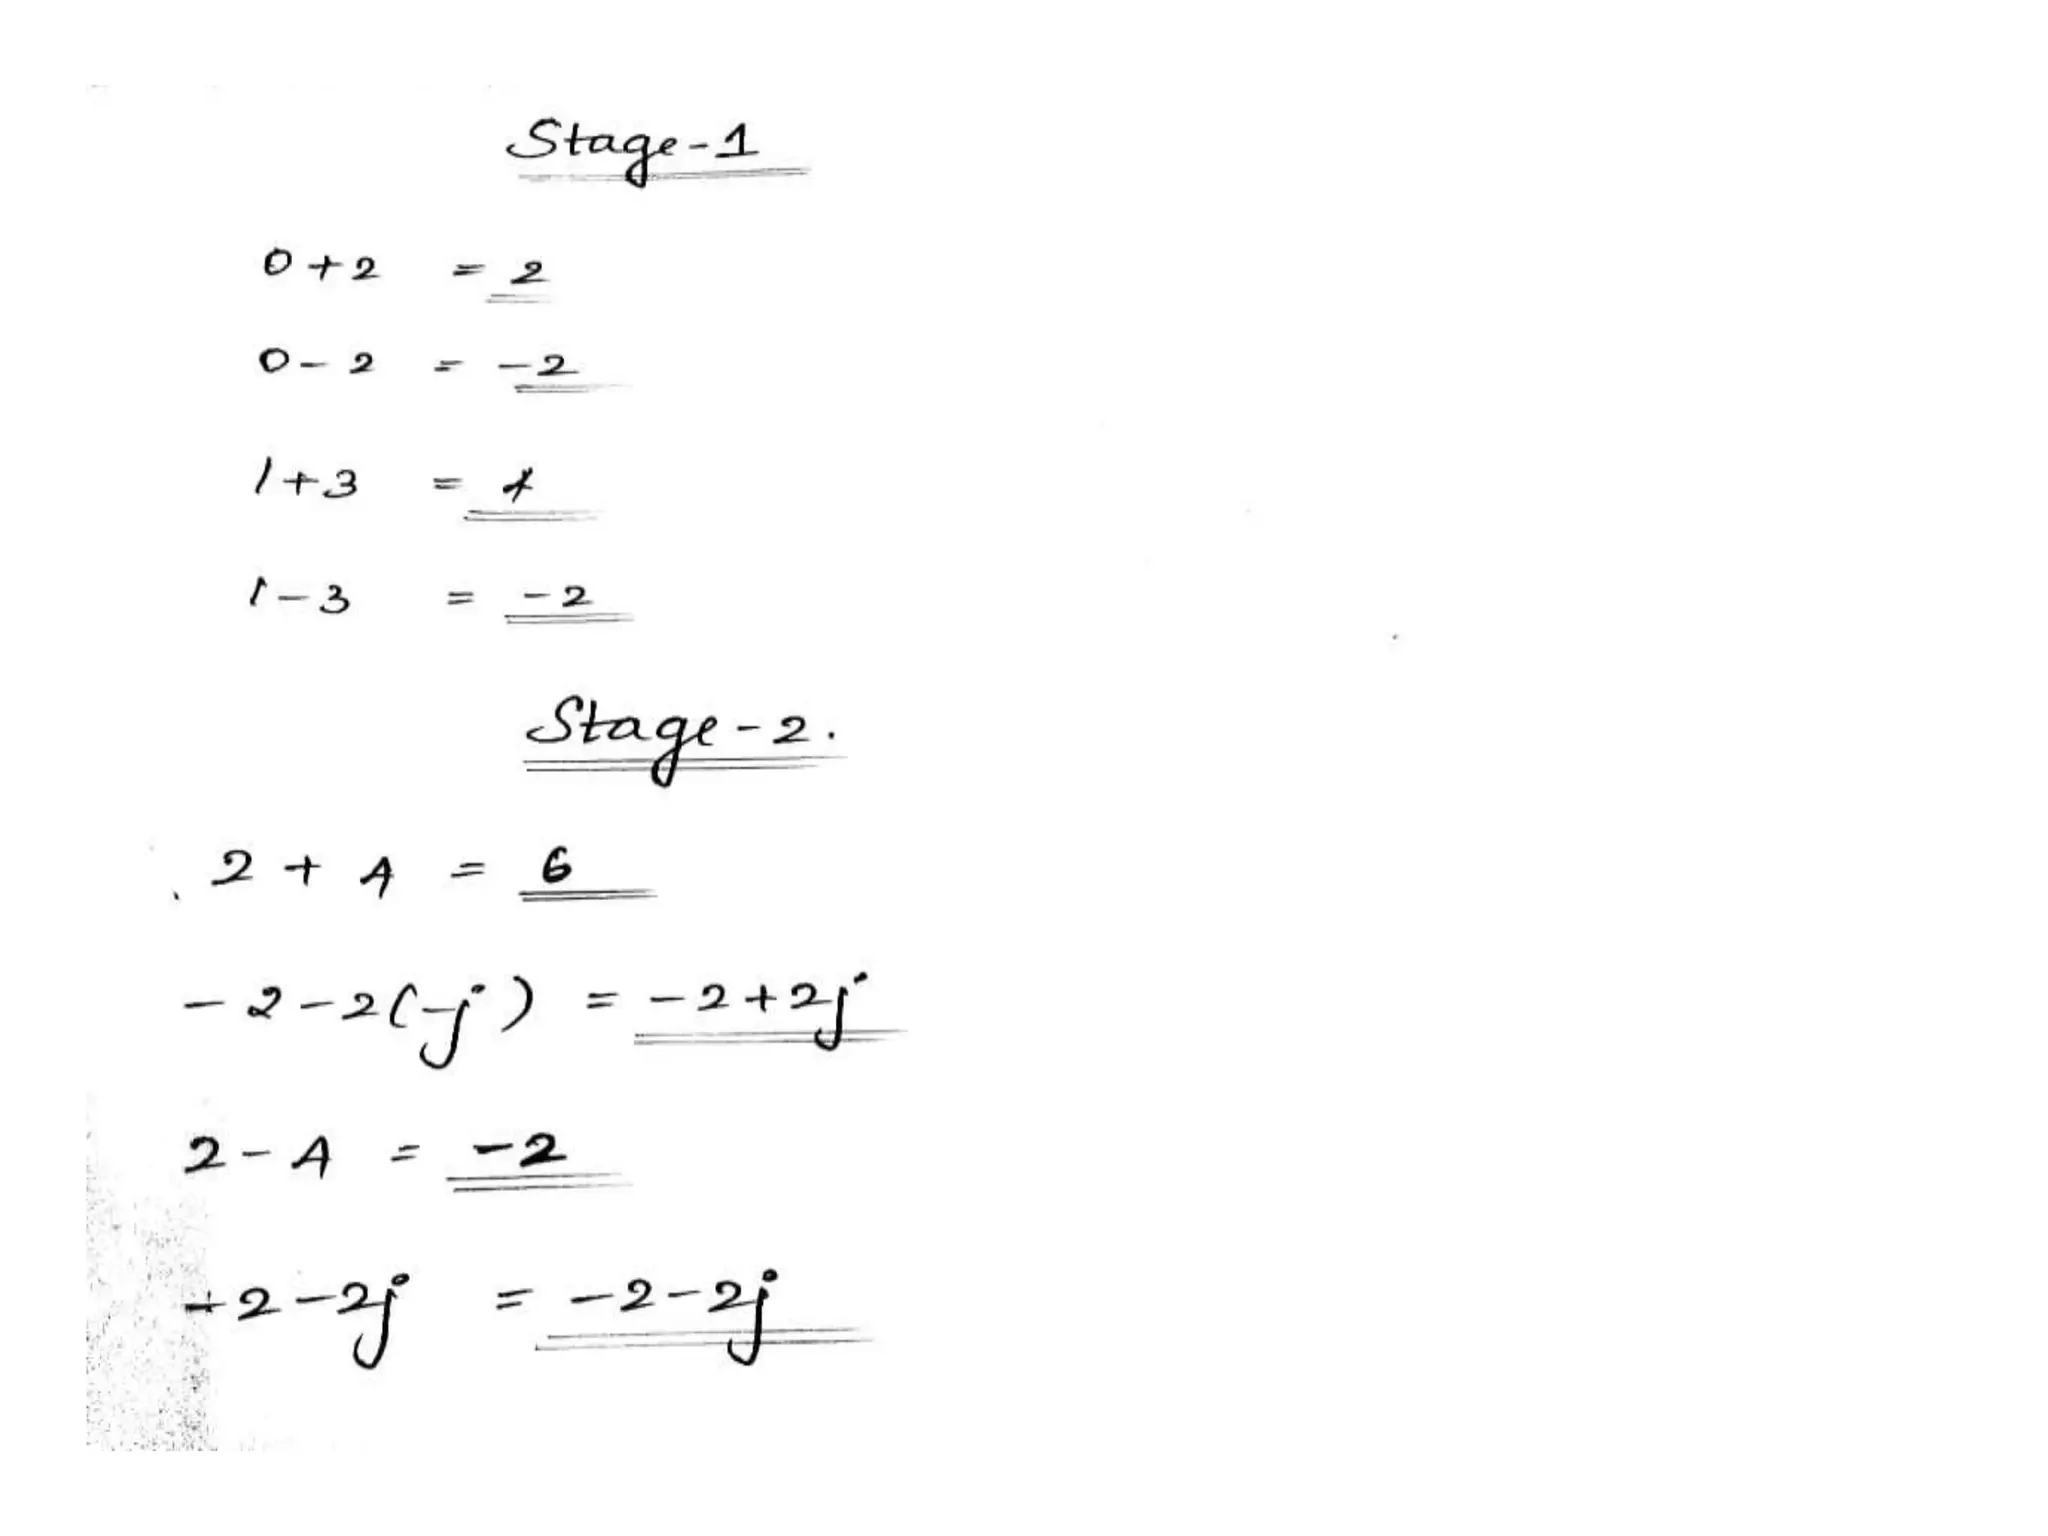 Stage-1
0+2 = 2
0-2 = -2
1+3 = 4
1-3 = -2
Stage-2.
2+4 = 6
-2-2(-j) = -2+2j
2-4 = -2
-2-2j = -2-2j